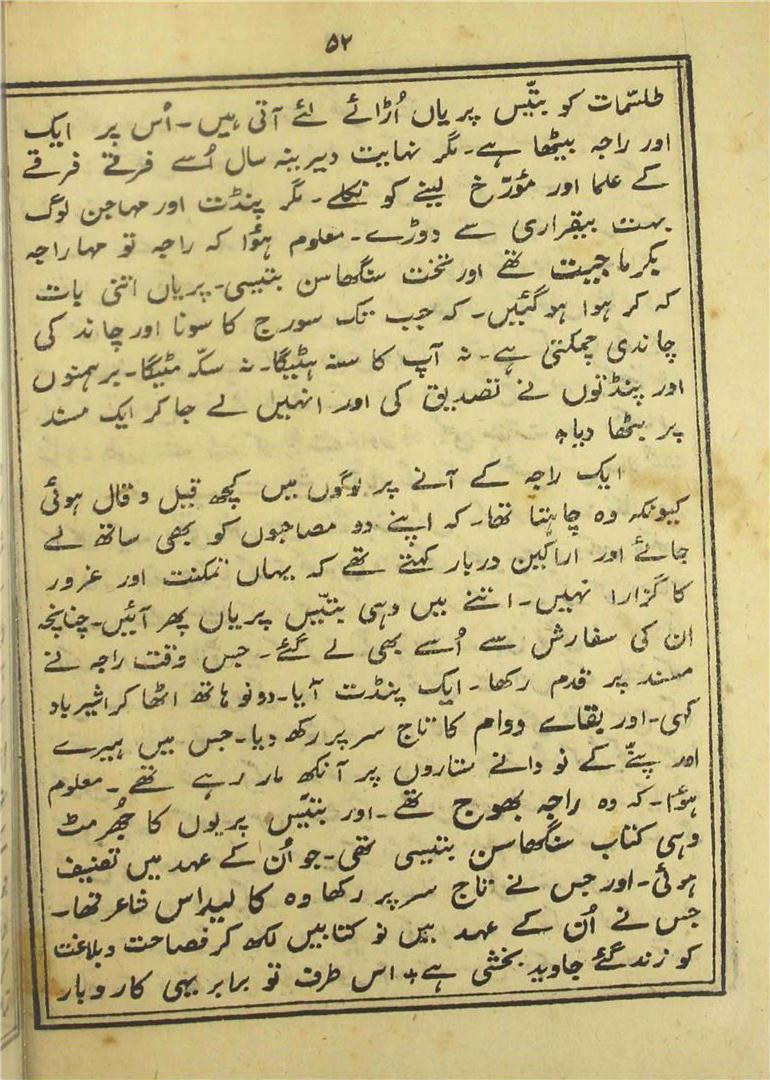 ۵۲
طلسمات کو بتّیس پریاں اُڑائے لئے آتی ہیں۔ اُس پر ایک
اور راجہ بیٹھا ہے۔ مگر نہایت دیرینہ سال اُسے فرقے فرقے
کے علما اور مؤرّخ لینے کو نکلے۔ مگر پنڈت اور مہاجن لوگ
بہت بیقراری سے دوڑے۔ معلوم ہؤا کہ راجہ تو مہاراجہ
بکرماجیت تھے اور تخت سنگھاسن بتیسی۔ پریاں اتنی بات
کہ کر ہوا ہوگئیں۔ کہ جب تک سورج کا سونا اور چاند کی
چاندی چمکتی ہے۔ نہ آپ کا سنہ ہٹیگا۔ نہ سکّہ مٹیگا۔ برہمنوں
اور پنڈتوں نے تصدیق کی اور انہیں لے جا کر ایک مسند
پر بٹھا دیا٭
ایک راجہ کے آنے پر لوگوں میں کچھ قیل و قال ہوئی
کیونکہ وہ چاہتا تھا۔ کہ اپنے دو مصاحبوں کو بھی ساتھ لے
جائے اور اراکین دربار کہتے تھے کہ یہاں تمکنت اور غرور
کا گزارا نہیں۔ اتنے میں وہی بتّیس پریاں پھر آئیں۔ چنانچہ
ان کی سفارش سے اُسے بھی لے گئے۔ جس وقت راجہ نے
مسند پر قدم رکھا۔ ایک پنڈت آیا۔ دونو ہاتھ اٹھا کر اشیرباد
کہی۔ اور بقاے دوام کا تاج سر پر رکھ دیا۔ جس میں ہیرے
اور پنّے کے نو دانے ستاروں پر آنکھ مار رہے تھے۔ معلوم
ہؤا۔ کہ وہ راجہ بھوج تھے۔ اور بتیّس پریوں کا جھُرمٹ
وہی کتاب سنگھاسن بتیسی تھی۔ جو اُن کے عہد میں تصنیف
ہوئی۔ اور جس نے تاج سر پر رکھا وہ کالیداس شاعر تھا۔
جس نے اُن کے عہد میں نو کتابیں لکھ کر فصاحت و بلاغت
کو زندگئے جاوید بخشی ہے٭ اس طرف تو برابر یہی کاروبار